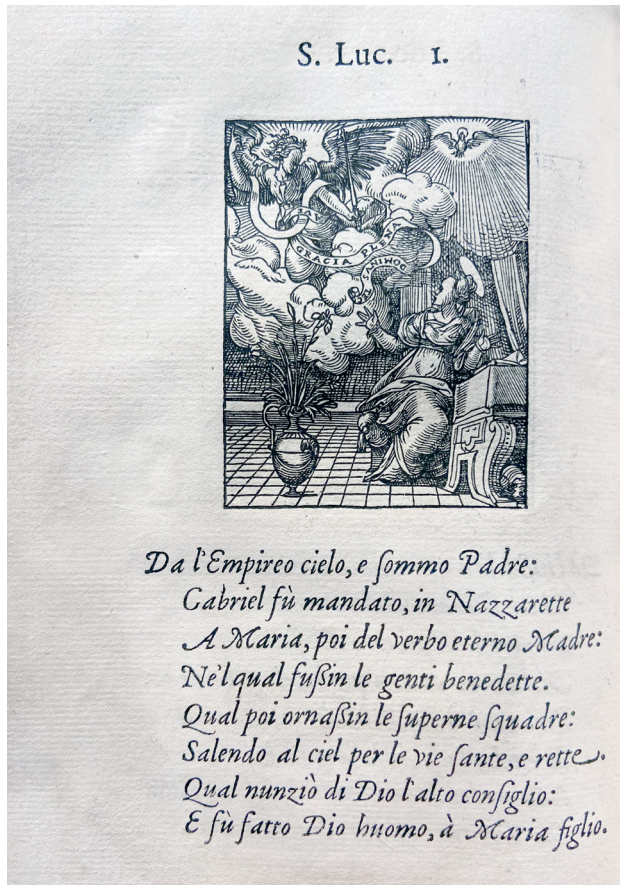 S. Luc. 1.
GRACIA PLENA
DOMINVS TE
Da l'Empireo cielo, e ſommo Padre:
Gabriel fù mandato, in Nazzarette
A Maria, poi del verbo eterno Madre:
Ne'l qual fußin le genti benedette.
Qual poi ornaßin le ſuperne ſquadre:
Salendo al ciel per le vie ſante, e rette.
Qual nunziò di Dio l'alto conſiglio:
E fù fatto Dio huomo, à Maria figlio.